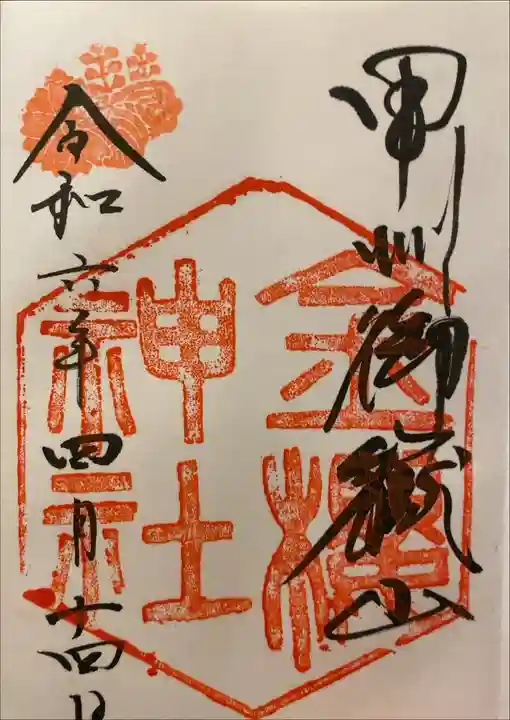 甲州御嶽山
金櫻神社
令和六年四月十四日